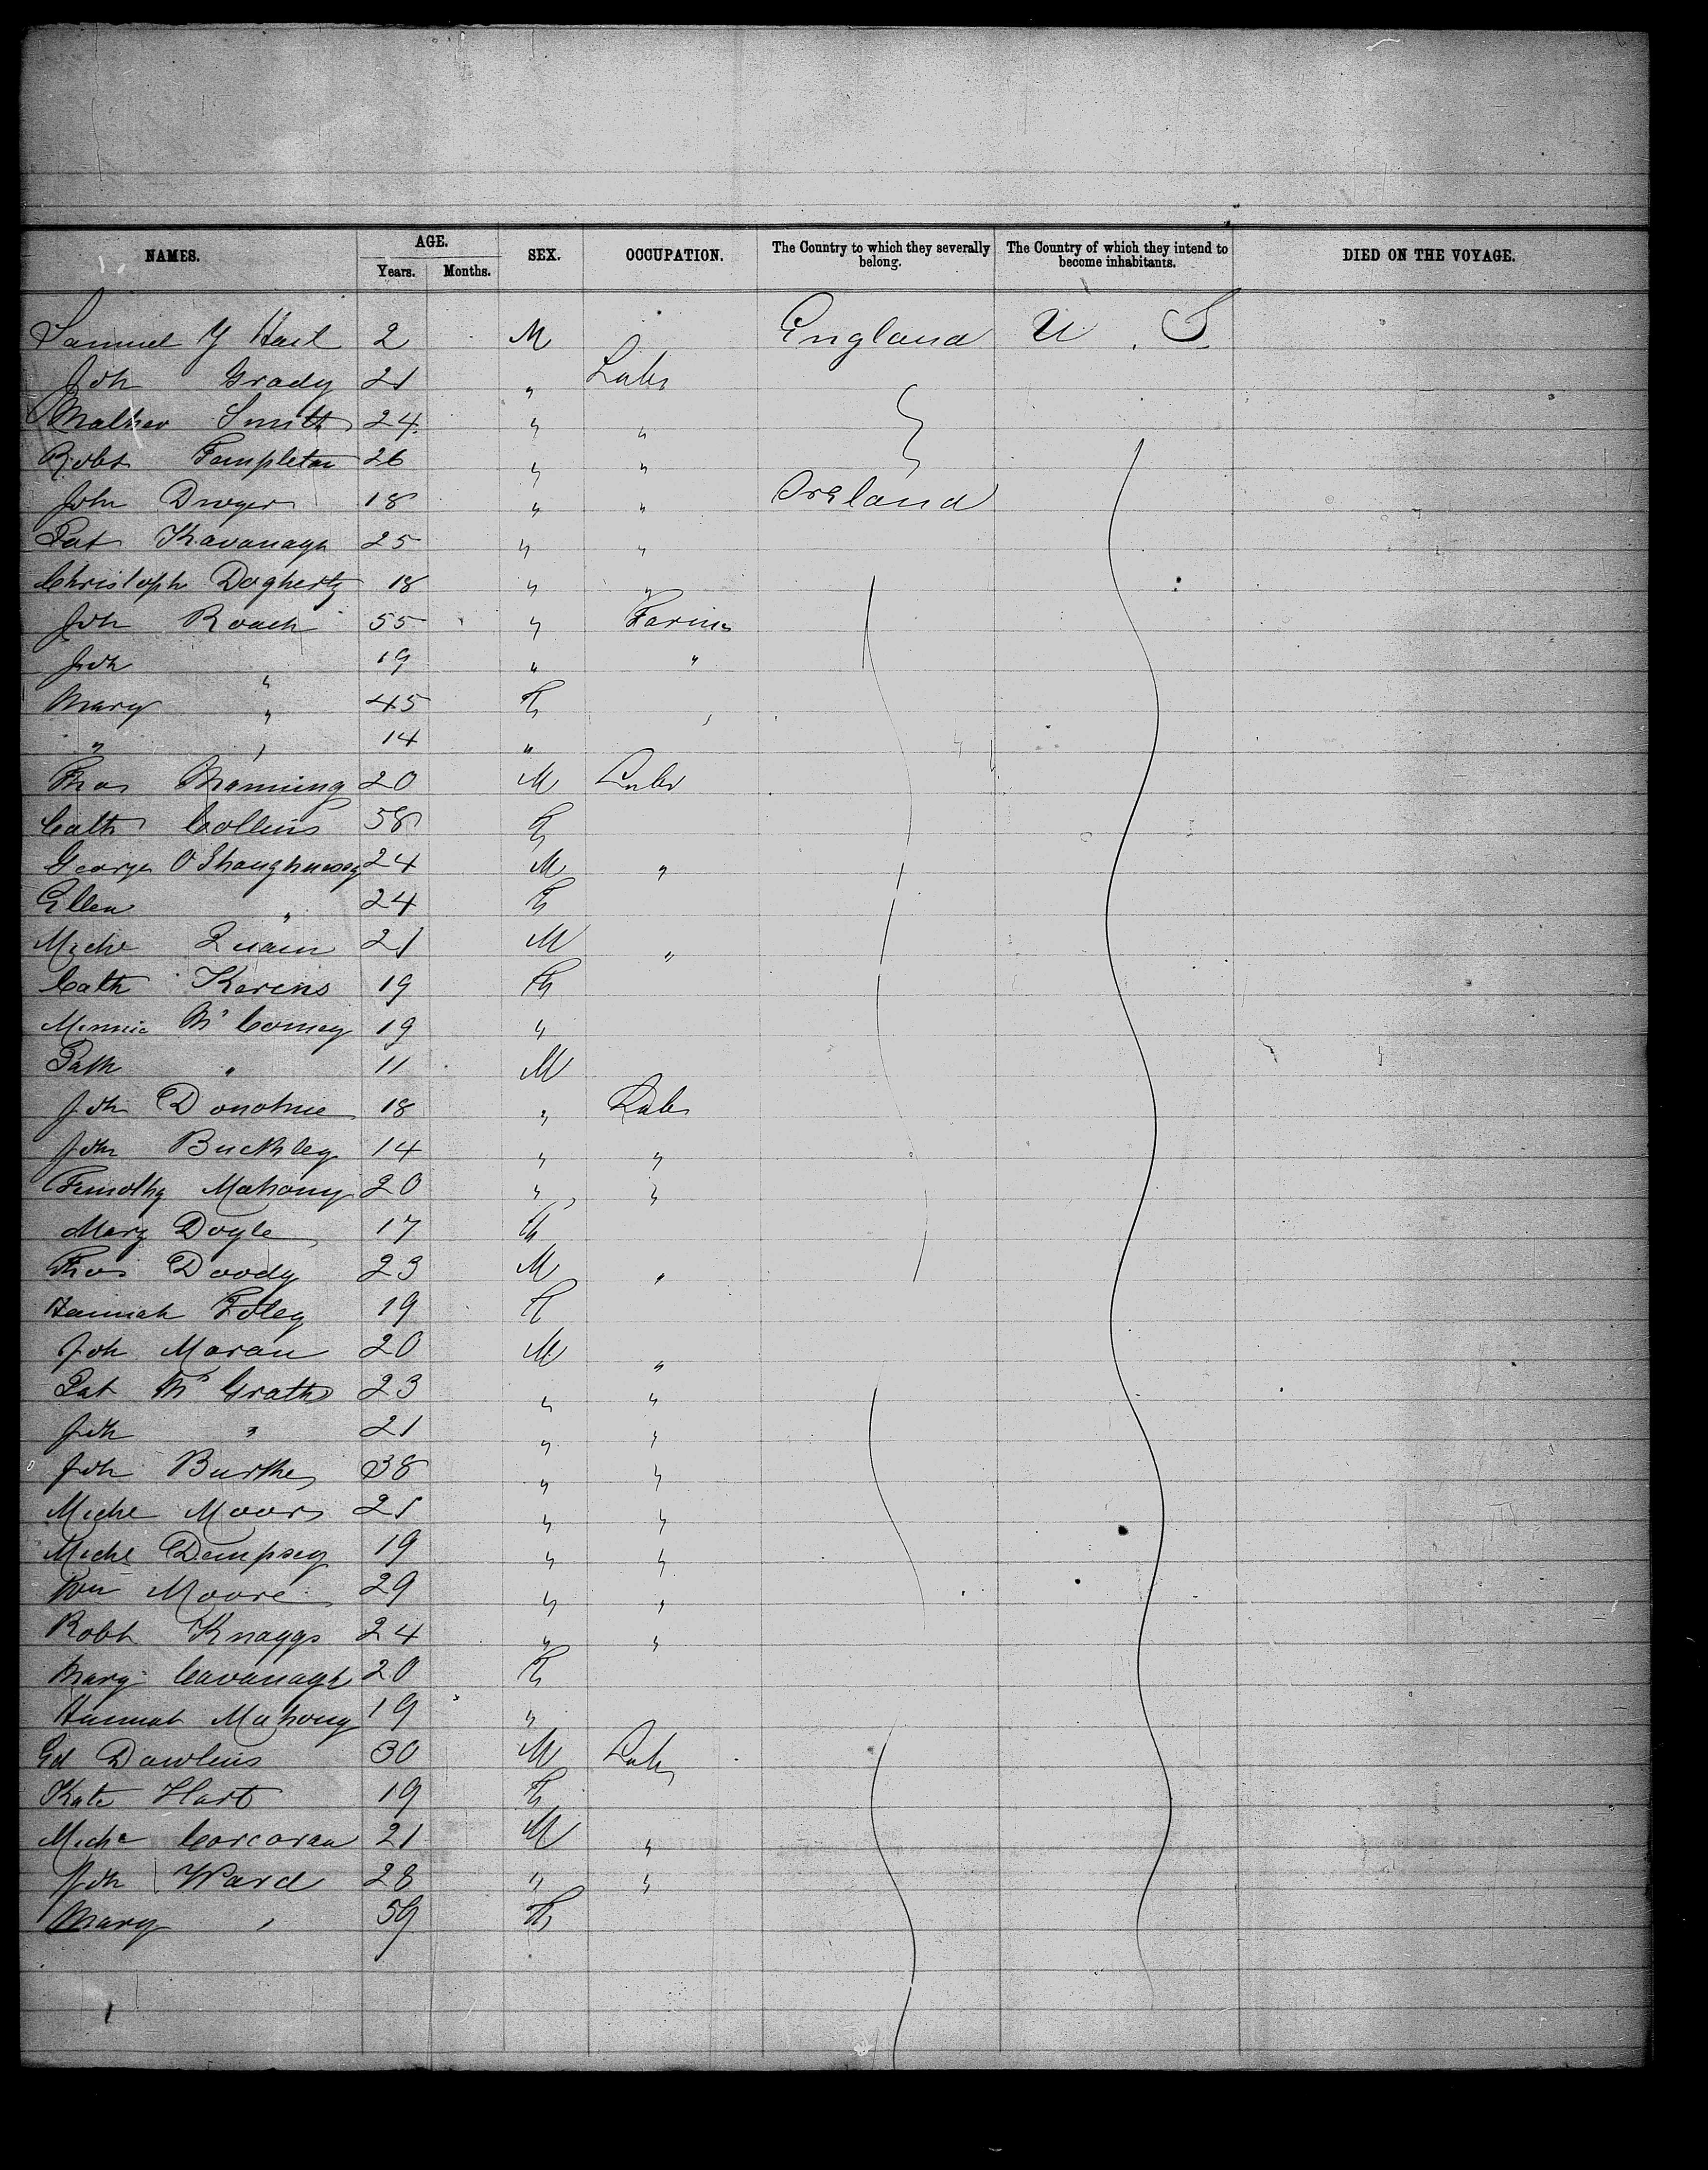 NAMES. AGE. SEX. OCCUPATION. The Country to which they severally belong. The Country of which they intend to become inhabitants. DIED ON THE VOYAGE.
Years. Months.
Samuel Y Hail 2 M England U. S.
Joh Grady 21 " Labr
Mathew Smith 24 " "
Robt Templeton 26 " "
John Dwyer 18 " " Ireland
Pat Kavanagh 25 " "
Christoph Dogherty 18 " "
Joh Roach 55 " Farmr
Joh " 19 " "
Mary " 45 F
" " 14 "
Thos Manning 20 M Labr
Cath Collins 58 F
George O'Shaughnessy 24 M "
Ellen " 24 F
Miche Quain 21 M "
Cath Kerens 19 F
Minnie Mc Comey 19 "
Path " 11 M
Joh Donohue 18 " Labr
Joh Buckley 14 " "
Timothy Mahony 20 " "
Mary Doyle 17 F
Thos Doody 23 M "
Hannah Foley 19 F
Joh Moran 20 M "
Pat Mc Grath 23 " "
Joh " 21 " "
Joh Burke 38 " "
Miche Moore 21 " "
Michl Dempsey 19 " "
Wm Moore 29 " "
Robt Knaggs 24 " "
Mary Cavanagh 20 F
Hannah Mahony 19 "
Ed Dawlins 30 M Labr
Kate Hart 19 F
Miche Corcoran 21 M "
Joh Ward 28 " "
Mary " 59 F